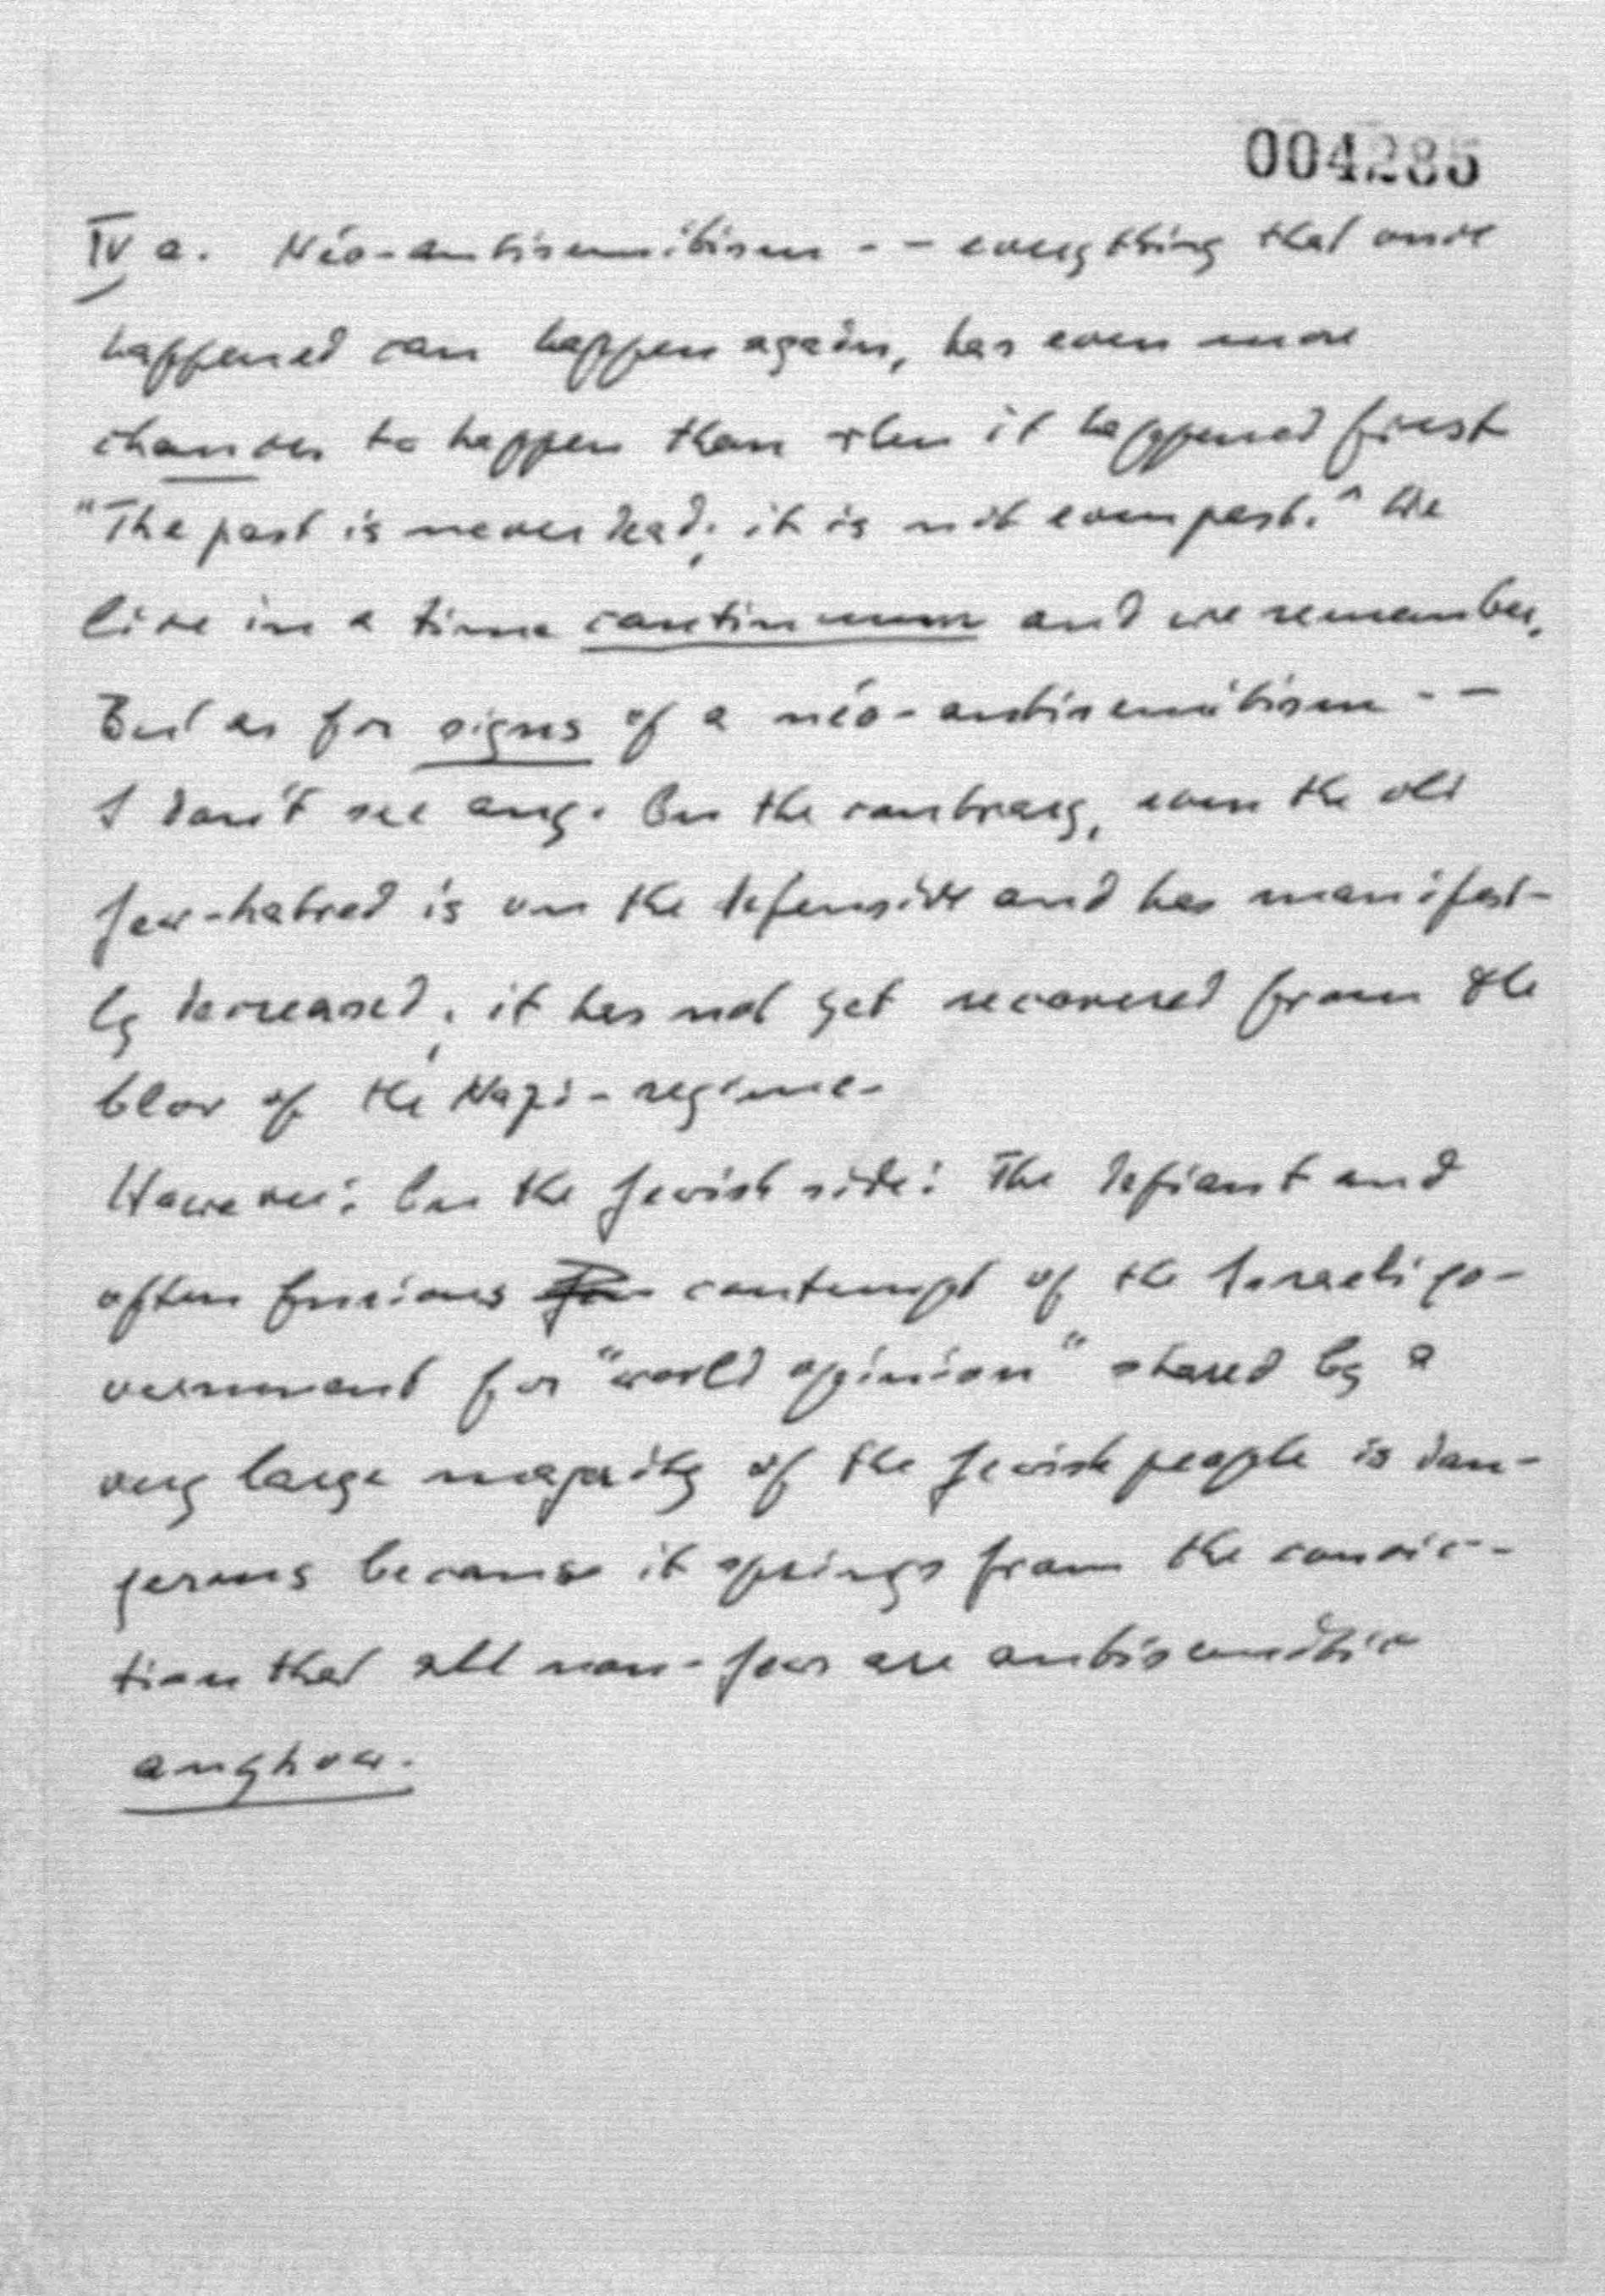 004285
IV a. Néo-antisemitism -- everything that once
happened can happen again, has even more
chances to happen than when it happened first
"The past is never dead; it is not even past." We
live in a time continuum and we remember.
But as for signs of a néo-antisemitism --
I don't see any. On the contrary, even the old
Jew-hatred is on the defensive and has manifest-
ly decreased; it has not yet recovered from the
blow of the Nazi-regime.
However: On the Jewish side: The defiant and
often furious contempt of the Israeli go-
vernment for "world opinion" shared by a
very large majority of the Jewish people is dan-
gerous because it springs from the convic-
tion that all non-Jews are antisemitic
anyhow.